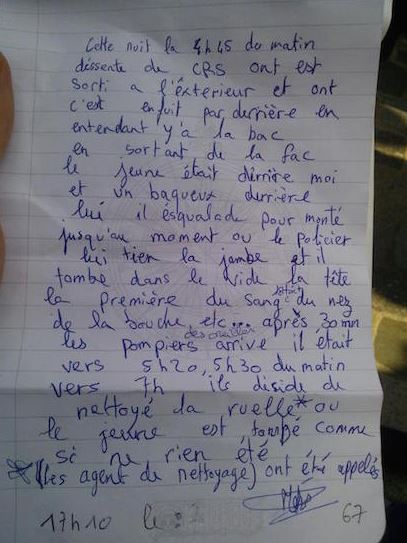 Cette nuit la 4h45 du matin
déssente de CRS ont est
sorti a l'éxterieur et ont
c'est enfuit par derrière en
entendant y'a la bac
en sortant de la fac
le jeune était dérrière moi
et un baqueux derrière
lui il esqualade pour monté
jusqu'au moment ou le policier
lui tien la jambe et il
tombe dans le vide la tête
la première du sang du nez
de la bouche etc... après 30 min
des oreilles
les pompiers arrive il était
vers 5h20, 5h30 du matin
vers 7h ils diside de
nettoyé la ruelle* ou
le jeune est tombé comme
si ne rien été
*(les agent de nettoyage) ont été appelés
17h10 le : 67